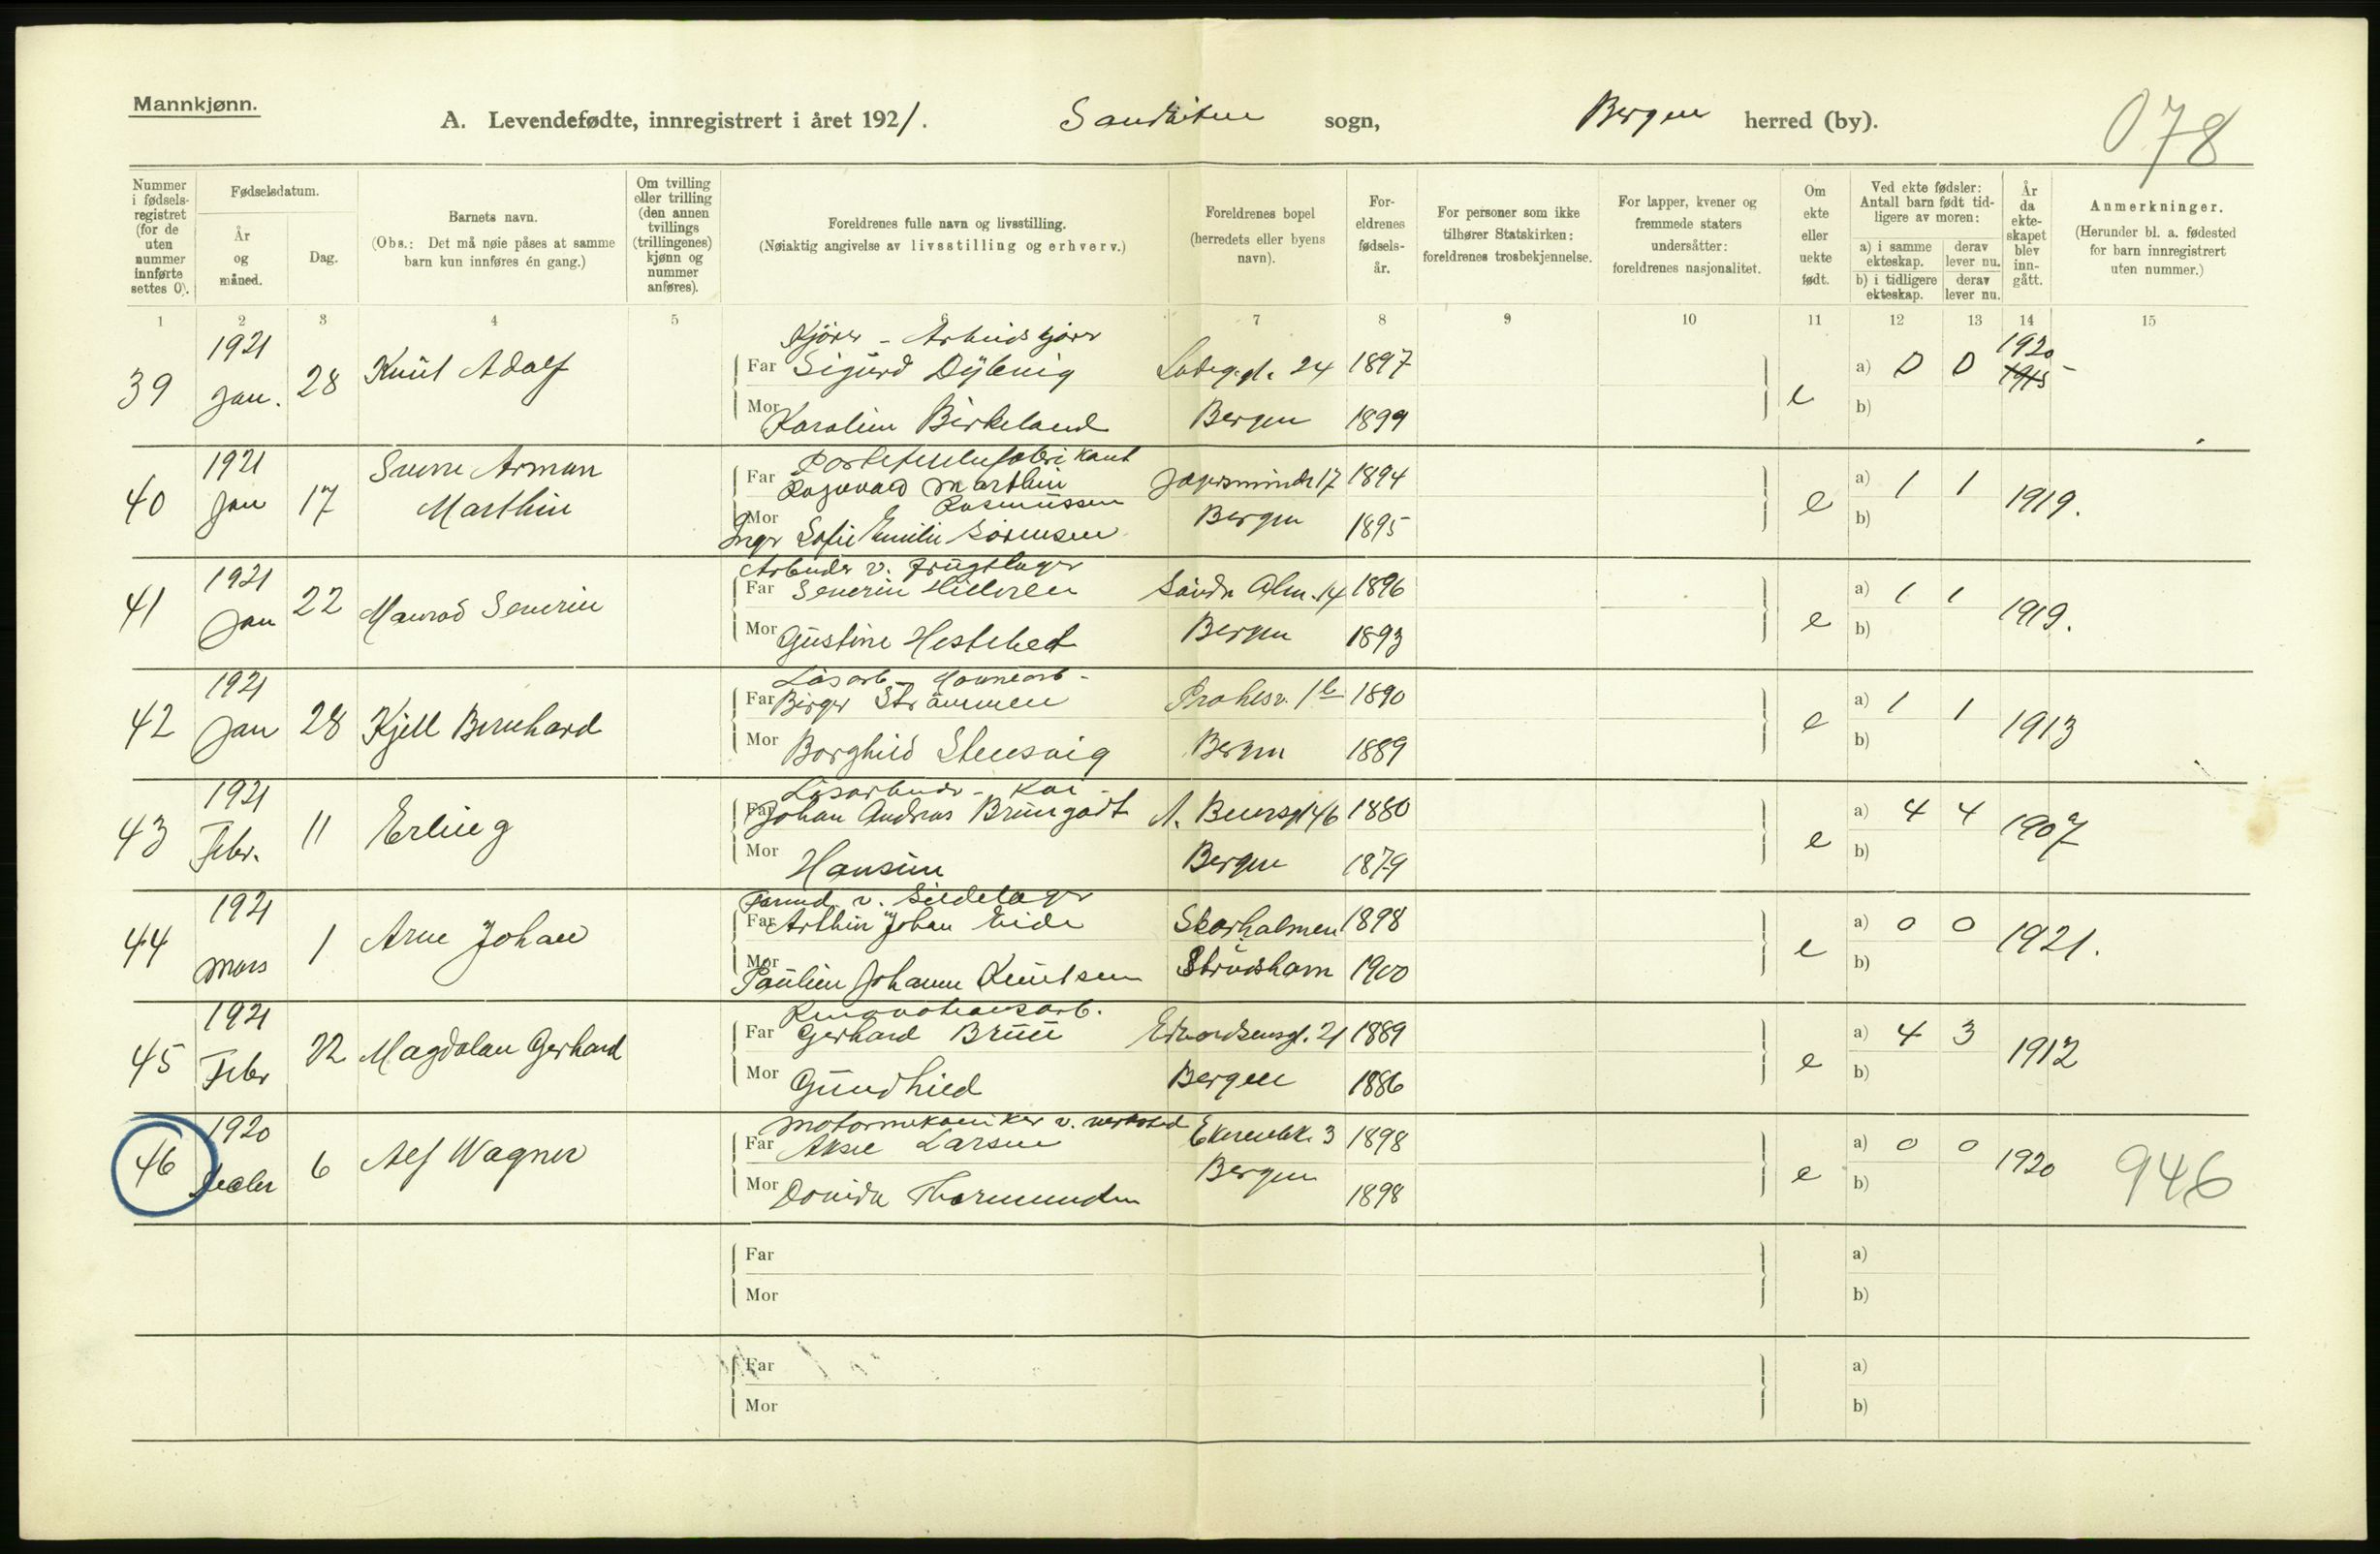 Mannkjønn.
A. Levendefødte, innregistrert i året 1921.
sogn,
Bergen herred (by).
078
Nummer i fødsels-registret (for de uten nummer innførte settes 0).
Fødselsdatum.
År og måned.
Dag.
Barnets navn.
(Obs.: Det må nøie påses at samme barn kun innføres én gang.)
Om tvilling eller trilling (den annen tvillings (trillingenes) kjønn og nummer anføres).
Foreldrenes fulle navn og livsstilling.
(Nøiaktig angivelse av livsstilling og erhverv.)
Foreldrenes bopel (herredets eller byens navn).
For-eldrenes fødsels-år.
For personer som ikke tilhører Statskirken: foreldrenes trosbekjennelse.
For lapper, kvener og fremmede staters undersåtter: foreldrenes nasjonalitet.
Om ekte eller uekte født.
Ved ekte fødsler: Antall barn født tid-ligere av moren:
a) i samme ekteskap. derav lever nu.
b) i tidligere ekteskap. derav lever nu.
År da ekte-skapet blev inn-gått.
Anmerkninger.
(Herunder bl. a. fødested for barn innregistrert uten nummer.)
1 2 3 4 5 6 7 8 9 10 11 12 13 14 15
Kjörer - Arbeidskjörer
39 1921 Jan. 28 Knut Adolf
Far Sigurd 24 1897 e a) 0 0 1920 1915
Mor Karoline Birkeland Bergen 1899 b)
40 1921 Jan 17 Sverre Arman Marthin
Far Ragnvald Marthin Rasmussen 17 1894 e a) 1 1 1919.
Mor Inga Sofie Emilie Sörensen Bergen 1895 b)
Arbeider v. Frugtlager
41 1921 Jan 22 Severin
Far Severin Alm. 14 1896 e a) 1 1 1919.
Mor Gustine Bergen 1893 b)
42 1921 Jan 28 Kjell Bernhard
Far Birger Strömmen 1890 e a) 1 1 1913
Mor Borghild Stensvig Bergen 1889 b)
Kai
43 1921 Febr. 11 Erling
Far Johan Andreas 46 1880 e a) 4 4 1907
Mor Hansine Bergen 1879 b)
v. Sildelager
44 1921 Mars 1 Arne Johan
Far Johan Eide Skarholmen 1898 e a) 0 0 1921.
Mor Pauline Johanne Knutsen Strusham 1900 b)
Renovationsarb.
45 1921 Febr 22 Magdalan Gerhard
Far Gerhard Bruu Edvardsensgt. 21 1889 e a) 4 3 1912
Mor Gundhild Bergen 1886 b)
Motormekaniker v. verksted
46 1920 Decbr 6 Alf Wagner
Far Aksel Larsen 3 1898 e a) 0 0 1920 946
Mor Bergen 1898 b)
Far a)
Mor b)
Far a)
Mor b)